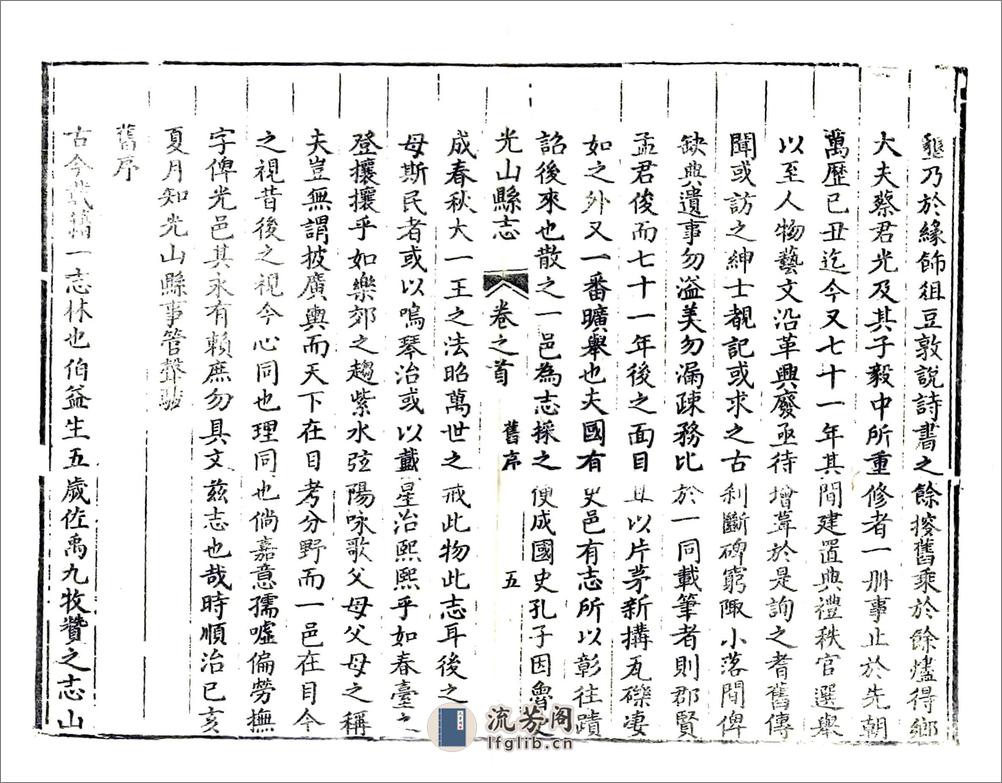 懇乃於緣飾俎豆敦說詩書之餘搜舊乘於餘燼得鄉
大夫蔡君光及其子毅中所重修者一册事止於先朝
萬歷己丑迄今又七十一年其間建置典禮秩官選舉
以至人物藝文沿革興廢亟待增葺於是詢之耆舊傳
聞或訪之紳士覩記或求之古刹斷碑窮陬小落間俾
缺典遺事勿溢美勿漏疎務比於一同載筆者則郡賢
孟君俊而七十一年後之面目且以片茅新搆瓦礫凄
如之外又一番曠舉也夫國有史邑有志所以彰往蹟
詔後來也散之一邑為志採之便成國史孔子因魯史
光山縣志 卷之首 舊序 五
成春秋大一王之法昭萬世之戒此物此志耳後之
母斯民者或以鳴琴治或以戴星治熙熙乎如春臺之
登攘攘乎如樂郊之趨紫水弦陽咏歌父母父母之稱
夫豈無謂披廣輿而天下在目考分野而一邑在目今
之視昔後之視今心同也理同也倘嘉意孺噓偏勞撫
字俾光邑其永有賴庶勿具文茲志也哉時順治己亥
夏月知光山縣事管聲駿
舊序
古今載籍一志林也伯益生五歲佐禹九牧贊之志山
流芳阁
lfglib.cn